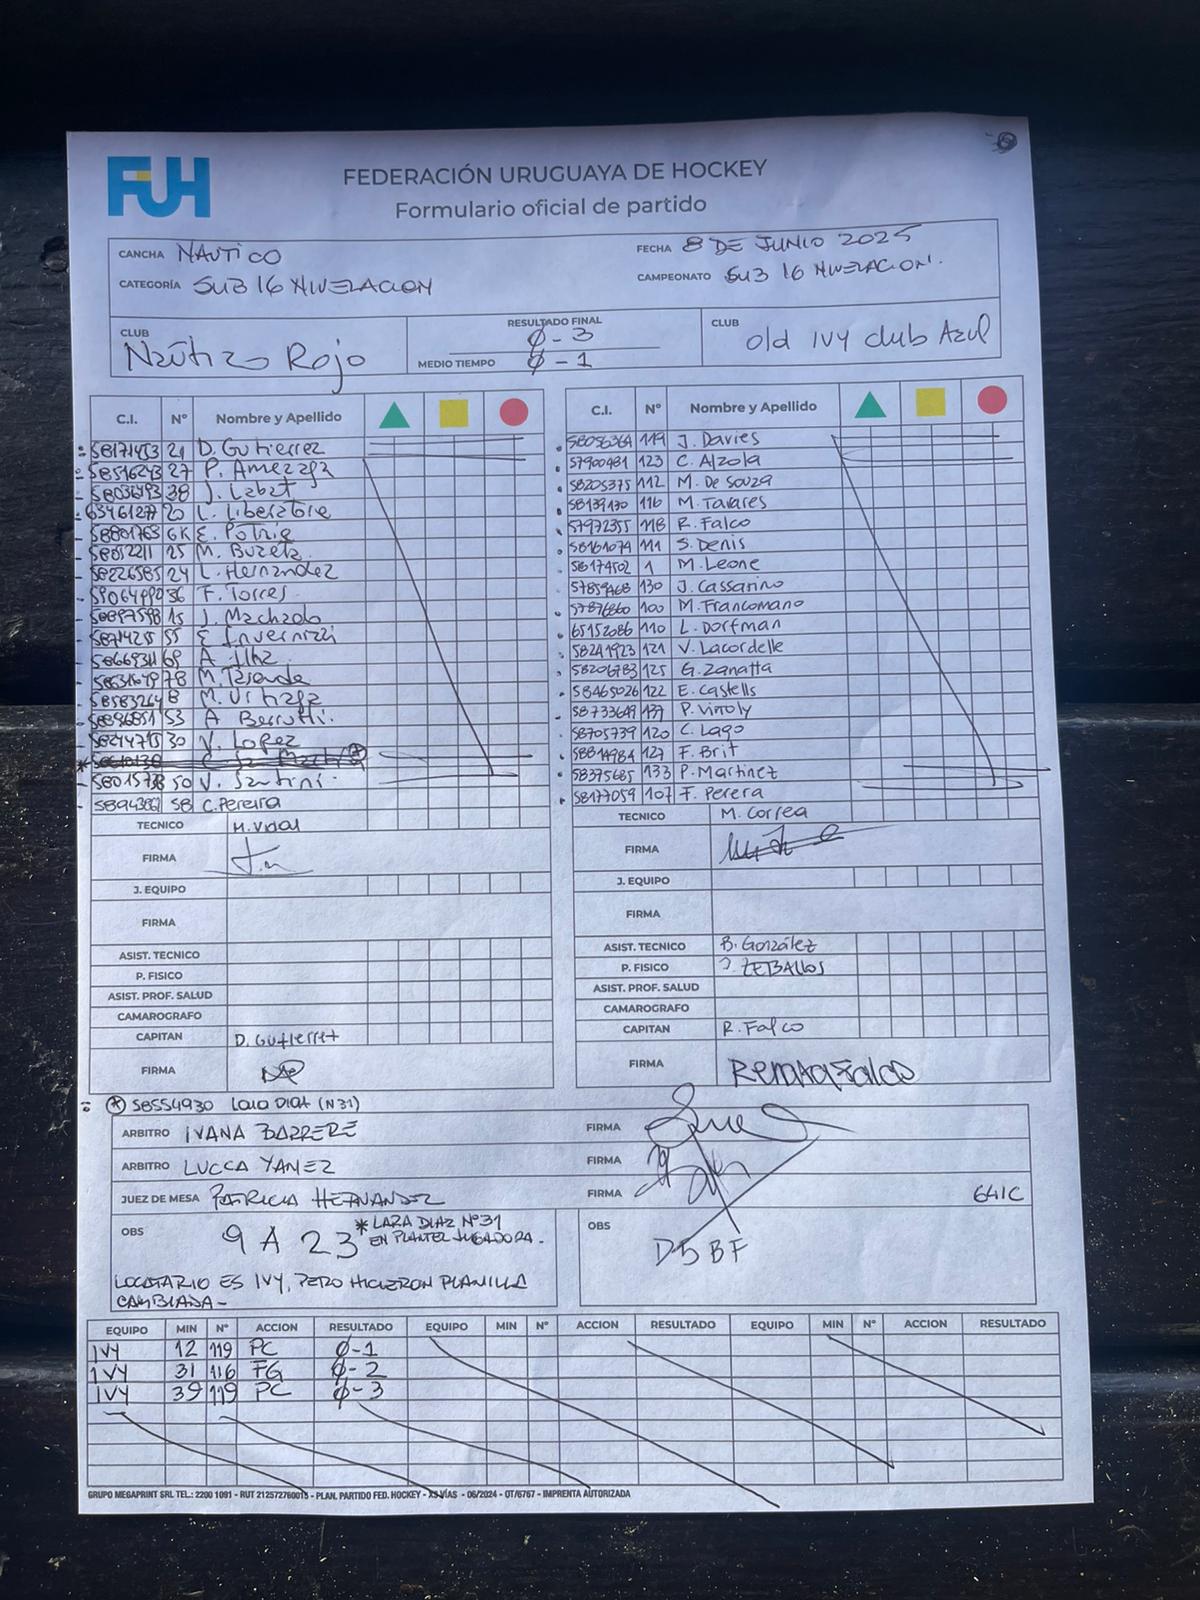 FUH
FEDERACIÓN URUGUAYA DE HOCKEY
Formulario oficial de partido
CANCHA NAUTICO FECHA 8 DE JUNIO 2025
CATEGORÍA SUB 16 NIVELACION CAMPEONATO SUB 16 NIVELACION.
CLUB Naútico Rojo RESULTADO FINAL Ø-3 CLUB old IVY club Azul
MEDIO TIEMPO Ø-1
C.I. Nº Nombre y Apellido
21 D. Gutierrez
27 P. Amezaga
38 J. Labat
20 L. Liberatore
GK E. Potrie
25 M. Buzeta
24 L. Hernandez
36 F. Torres
15 J. Machado
55 E. Invernizzi
69 A.
78 M.
8 M.
53 A Berrutti.
30 V. Lopez
50 V. Santini.
58 C. Pereira
TECNICO M. Vidal
FIRMA
J. EQUIPO
FIRMA
ASIST. TECNICO
P. FISICO
ASIST. PROF. SALUD
CAMAROGRAFO
CAPITAN D. Gutierrez
FIRMA
C.I. Nº Nombre y Apellido
58056364 119 J. Davies
57900481 123 C. Alzola
58205375 112 M. De Souza
58139170 116 M. Tavares
57972355 118 R. Falco
58161074 111 S. Denis
58174502 1 M. Leone
57859468 130 J. Cassarino
57876860 100 M. Francomano
65152086 110 L. Dorfman
58241923 121 V. Lacordelle
58206783 125 G. Zanatta
58465026 122 E. Castells
58733649 137 P. Vinoly
58705739 120 C. Lago
127 F. Brit
58375685 133 P. Martinez
58177059 107 F. Perera
TECNICO M. Correa
FIRMA
J. EQUIPO
FIRMA
ASIST. TECNICO B. González
P. FISICO J. ZEBALLOS
ASIST. PROF. SALUD
CAMAROGRAFO
CAPITAN R. Falco
FIRMA Renata Falco
* 58554930 Lara Diaz (N31)
ARBITRO IVANA BARRERE FIRMA
ARBITRO LUCCA YANEZ FIRMA
JUEZ DE MESA PATRICIA HERNANDEZ FIRMA 641C
OBS 9 A 23 * LARA DIAZ Nº31
EN PLANTEL JUGADORA.
LOCATARIO ES IVY, PERO HICIERON PLANILLA
CAMBIADA-
OBS D5BF
EQUIPO MIN Nº ACCION RESULTADO EQUIPO MIN Nº ACCION RESULTADO EQUIPO MIN Nº ACCION RESULTADO
IVY 12 119 PC Ø-1
IVY 31 116 FG Ø-2
IVY 39 119 PC Ø-3
GRUPO MEGAPRINT SRL TEL.: 2200 1091 - RUT 212572760015 - PLAN. PARTIDO FED. HOCKEY - X3 VÍAS - 06/2024 - OT/6767 - IMPRENTA AUTORIZADA